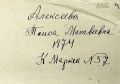 Алексеева
Таиса Матвеевна
1874
К. Маркса №57